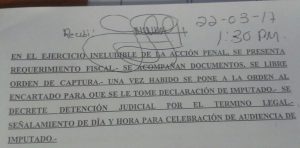 Recibí 22-03-17
1:30 PM.
EN EL EJERCICIO INELUDIBLE DE LA ACCIÓN PENAL, SE PRESENTA
REQUERIMIENTO FISCAL.- SE ACOMPAÑAN DOCUMENTOS, SE LIBRE
ORDEN DE CAPTURA.- UNA VEZ HABIDO SE PONE A LA ORDEN AL
ENCARTADO PARA QUE SE LE TOME DECLARACIÓN DE IMPUTADO.- SE
DECRETE DETENCIÓN JUDICIAL POR EL TERMINO LEGAL.-
SEÑALAMIENTO DE DÍA Y HORA PARA CELEBRACIÓN DE AUDIENCIA DE
IMPUTADO.-